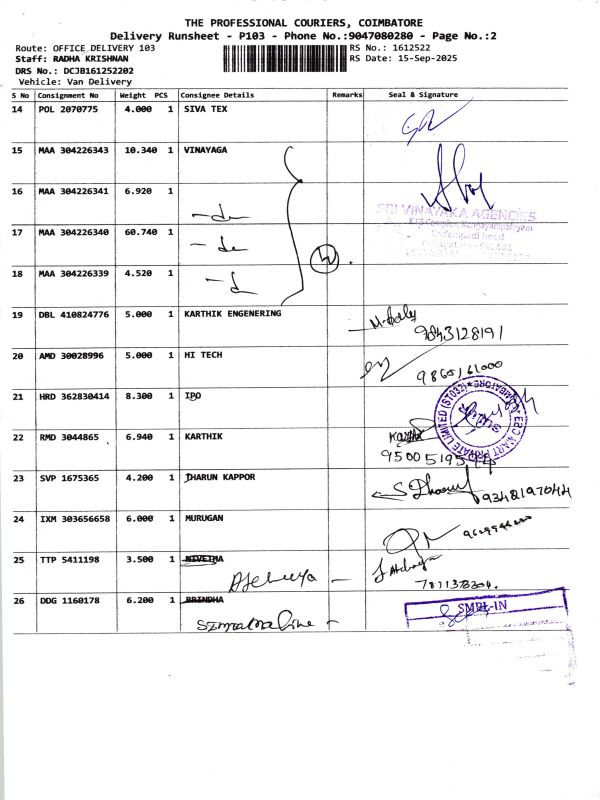 THE PROFESSIONAL COURIERS, COIMBATORE
Delivery Runsheet - P103 - Phone No.:9047080280 - Page No.:2
Route: OFFICE DELIVERY 103 RS No.: 1612522
Staff: RADHA KRISHNAN RS Date: 15-Sep-2025
DRS No.: DCJB161252202
Vehicle: Van Delivery
S No Consignment No Weight PCS Consignee Details Remarks Seal & Signature
14 POL 2070775 4.000 1 SIVA TEX
15 MAA 304226343 10.340 1 VINAYAGA
16 MAA 304226341 6.920 1
SRI VINAYAKA AGENCIES
17 MAA 304226340 60.740 1
18 MAA 304226339 4.520 1
19 DBL 410824776 5.000 1 KARTHIK ENGENERING
9843128191
20 AMD 30028996 5.000 1 HI TECH
9865161000
21 HRD 362830414 8.300 1 IPO
22 RMD 3044865 6.940 1 KARTHIK
PRIVATE LIMITED (ST032) COIMBATORE
23 SVP 1675365 4.200 1 THARUN KAPPOR
9348197044
24 IXM 303656658 6.000 1 MURUGAN
25 TTP 5411198 3.500 1 NIVETHA
26 DDG 1160178 6.200 1 BRINDHA
SMPL-IN